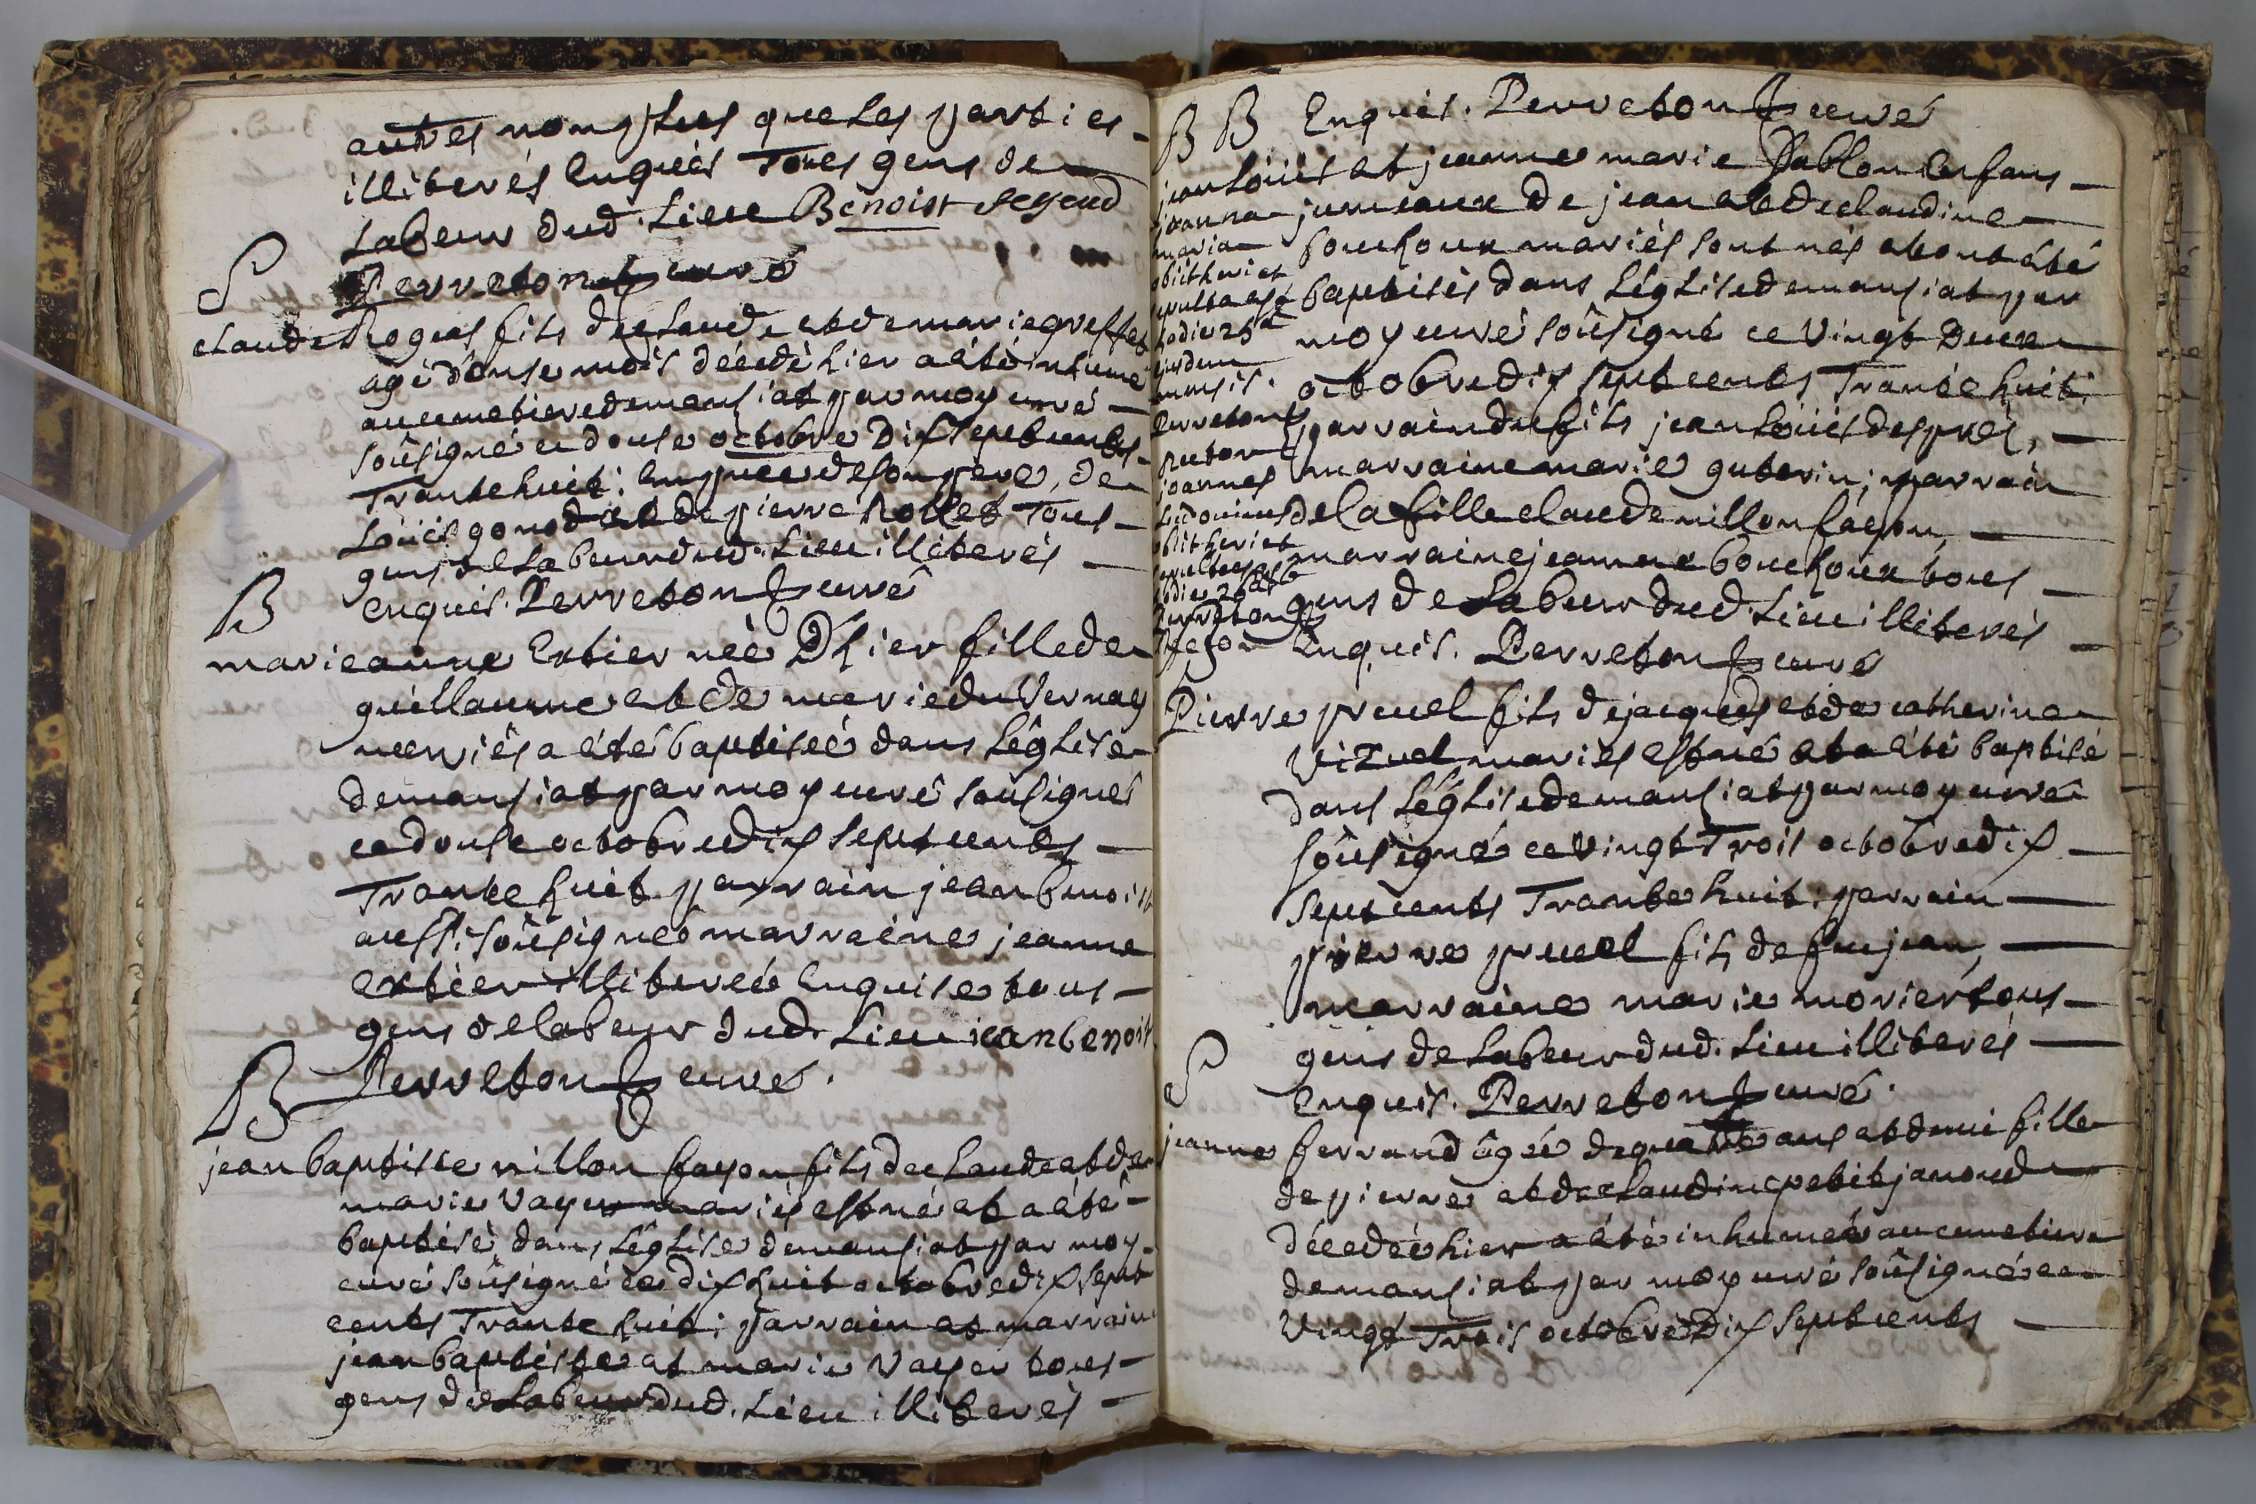 autres non plus que les parties
illiterés enquis Tous gens de
Labeur dud. Lieu Benoist
S
Perreton curé
claude Rogus fils de claude et de marie greffet
agé d'onse mois décédé hier a été inhumé
au cimetiere de mansiat par moy curé
soûsigné ce douse octobre Dix septcents
Trante huit: en presence de son pere, de
Loüis gonod et de pierre Rollet Tous
gens de Labeur dud. Lieu illiterés
enquis. Perreton curé
B
marieanne Extier née D'hier fille de
guillaume et de marie du Vernay
mariés a été baptiseé dans L'église
de mansiat par moy curé soûsigné
ce douse octobre dix septcents
Trante huit parrain jean benoist
aussi soûsigné marraine jeanne
extier illitereé enquise tous
gens de labeur dud. Lieu jean benoist
Perreton curé.
B
jean baptiste nillon fayon fils de claude et de
marie Vayer mariés est né et a été
baptisé dans L'église de mansiat par moy
curé soûsigné ce dix huit octobre dix sept
cents Trante huit; parrain et marraine
jean baptiste et marie Vayer tous
gens de Labeur dud. Lieu illiterés
B B Enquis. Perreton curé
jean Loüis et jeanne marie Pablon enfans
jumeaux De jean et De claudine
bouchoux mariés sont nés et ont été
baptisés dans L'église de mansiat par
moy curé soûsigné ce Vingt Deux
octobre dix septcents Trante huit;
parrain du fils jean Loüis desprès,
marraine marie guterin; parrain
de la fille claude nillon fayon,
marraine jeanne bouchoux tous
gens de Labeur dud. Lieu illiterés
Enquis. Perreton curé
joanna
maria
obiit heri et
sepulta est
hodie 25a
eiusdem
mensis.
Perreton
Rector
joannes
Ludovicus
obiit heri et
sepultus est
hodie 26a
Perreton
Rector
Pierre pruel fils de jacques et de catherine
Vizuel mariés est né et a été baptisé
dans L'église de mansiat par moy curé
soûsigné ce Vingt Trois octobre dix
septcents Trante huit: parrain
pierre pruel fils de feu jean,
marraine marie morier tous
gens de Labeur dud. Lieu illiterés
S
Enquis. Perreton curé.
jeanne ferrand âgée de quatre ans et demi fille
de pierre et de claudine petitjanoud
décedeé hier a été inhumeé au cimetiere
de mansiat par moy curé soûsigné ce
Vingt Trois octobre Dix septcents